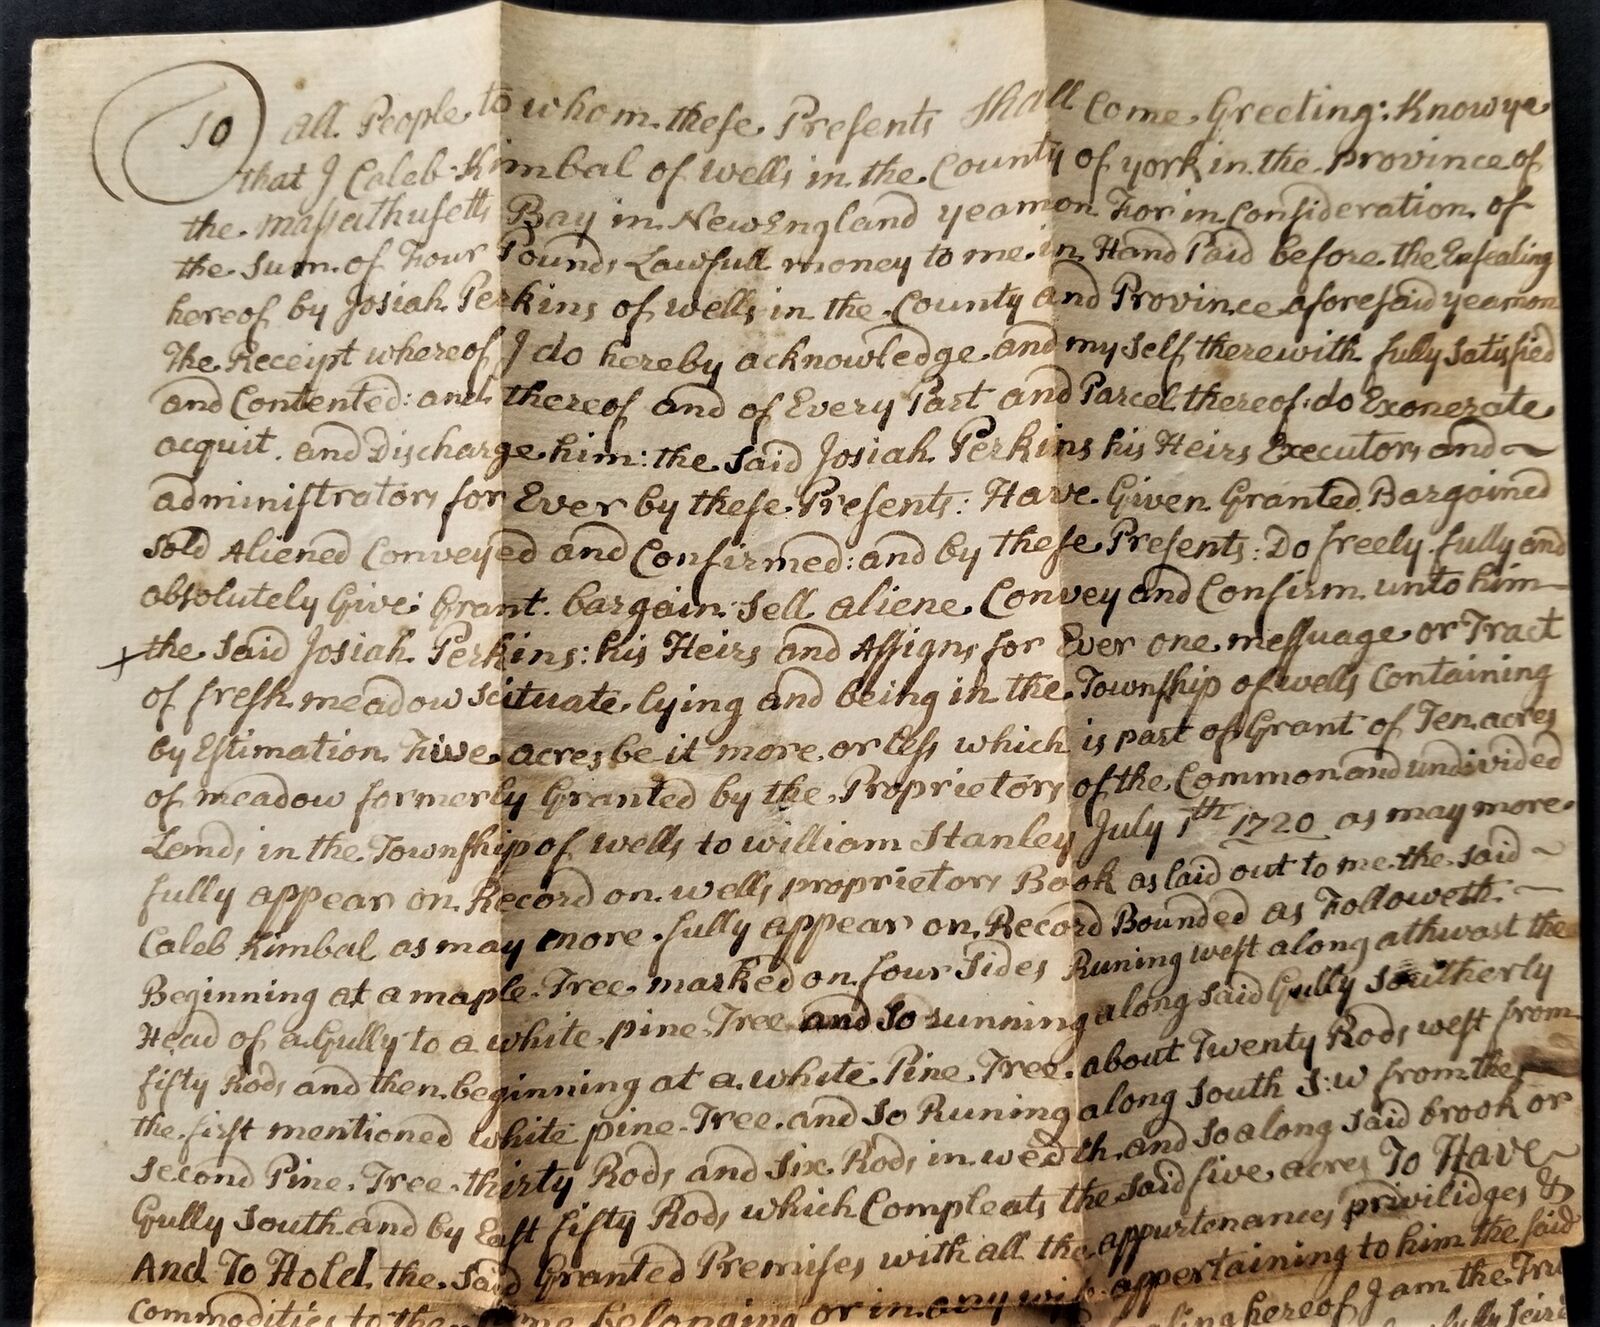 To all People to whom these Presents Shall Come Greeting: Know ye
that I Caleb Kimbal of wells in the County of york in the province of
the massathusetts Bay in New England yeamon For in Consideration of
the Sum of Four Pounds Lawfull money to me in Hand Paid before the Ensealing
hereof by Josiah Perkins of wells in the County and Province aforesaid yeamon
The Receipt whereof I do hereby acknowledge and my self therewith fully Satisfied
and Contented: and thereof and of Every Part and Parcel thereof: do Exonerate
acquit and Discharge him: the Said Josiah Perkins his Heirs Executors and
administrators for Ever by these Presents: Have Given Granted Bargained
Sold Aliened Conveyed and Confirmed: and by these Presents: Do freely fully and
absolutely Give: Grant bargain: Sell aliene Convey and Confirm unto him
the Said Josiah Perkins: his Heirs and Assigns for Ever one messuage or Tract
of fresh meadow Scituate lying and being in the Township of wells Containing
by Estimation Five acres be it more or less which is part of Grant of Ten acres
of meadow formerly Granted by the Proprietors of the Common and undivided
Lands in the Township of wells to william Stanley July 1th 1720 as may more
fully appear on Record on wells proprietors Book as laid out to me the Said
Caleb Kimbal as may more fully appear on Record Bounded as Followeth:
Beginning at a maple Tree marked on four Sides Runing west along athwart the
Head of a Gully to a white pine Tree and So running along Said Gully Southerly
fifty Rods and then beginning at a white Pine Tree about Twenty Rods west from
the first mentioned white pine Tree and So Runing along South S:w from the
Second Pine Tree thirty Rods and Six Rods in wedth and So along Said brook or
Gully South and by East fifty Rods which Compleats the Said five acres To Have
And To Hold the Said Granted Premises with all the appurtenances privilidges &
Commodities to the same belonging or in any wise appertaining to him the Said
hereof I am the True
fully Seized